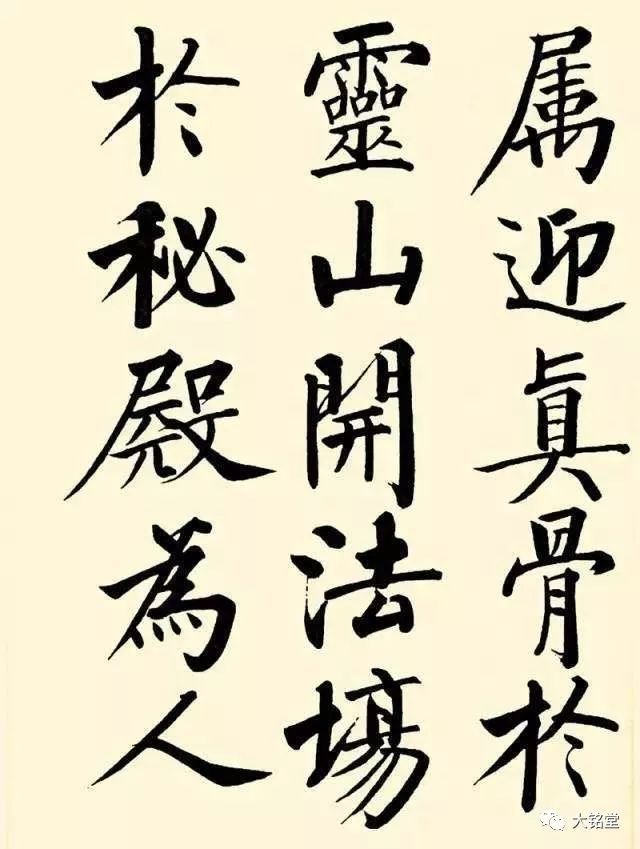 属迎真骨於
靈山開法場
於秘殿為人
大铭堂